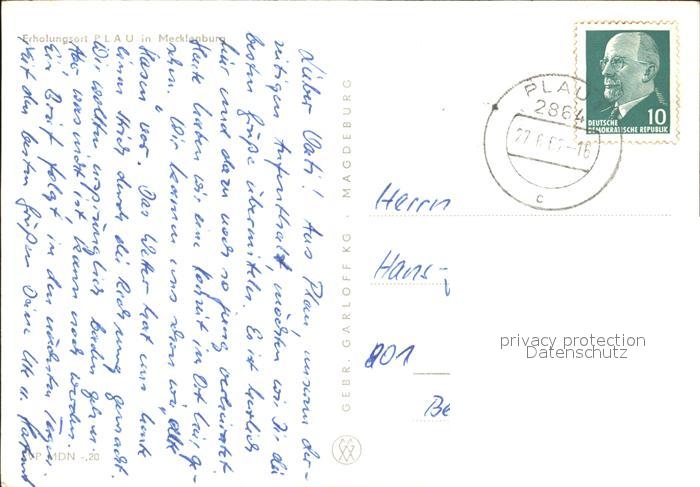 Erholungsort PLAU in Mecklenburg
Lieber Vati! Aus Plau, unserem der-
zeitigen Aufenthalt, möchten wir Dir die
besten Grüße übermitteln. Es ist herrlich
hier und dazu noch so jung verheiratet.
Heute haben wir eine Hochzeit im Ort
sehen. Wir kamen uns schon wie alte
Hasen vor. Das Wetter hat uns heute
einen Strich durch die Rechnung gemacht.
Wir wollten ursprünglich baden gehen.
Aber was nicht ist, kann noch werden.
Ein Brief folgt in den nächsten Tagen.
Mit den besten Grüßen Deine
EVP MDN -,20
GEBR. GARLOFF KG · MAGDEBURG
PLAU
2864
27.6.6
-16
c
10
DEUTSCHE
DEMOKRATISCHE REPUBLIK
Herrn
Hans-
801
Be
privacy protection
Datenschutz